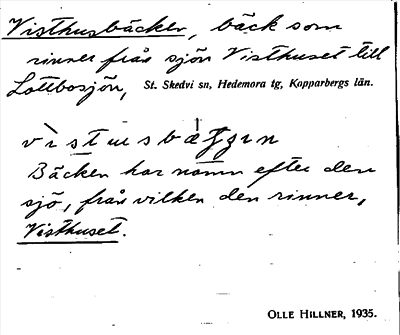 Visthusbäcken, bäck som
rinner från sjön Visthuset till
Lottbosjön, St. Skedvi sn, Hedemora tg, Kopparbergs län.
Bäcken har namn efter den
sjö, från vilken den rinner,
Visthuset.
OLLE HILLNER, 1935.